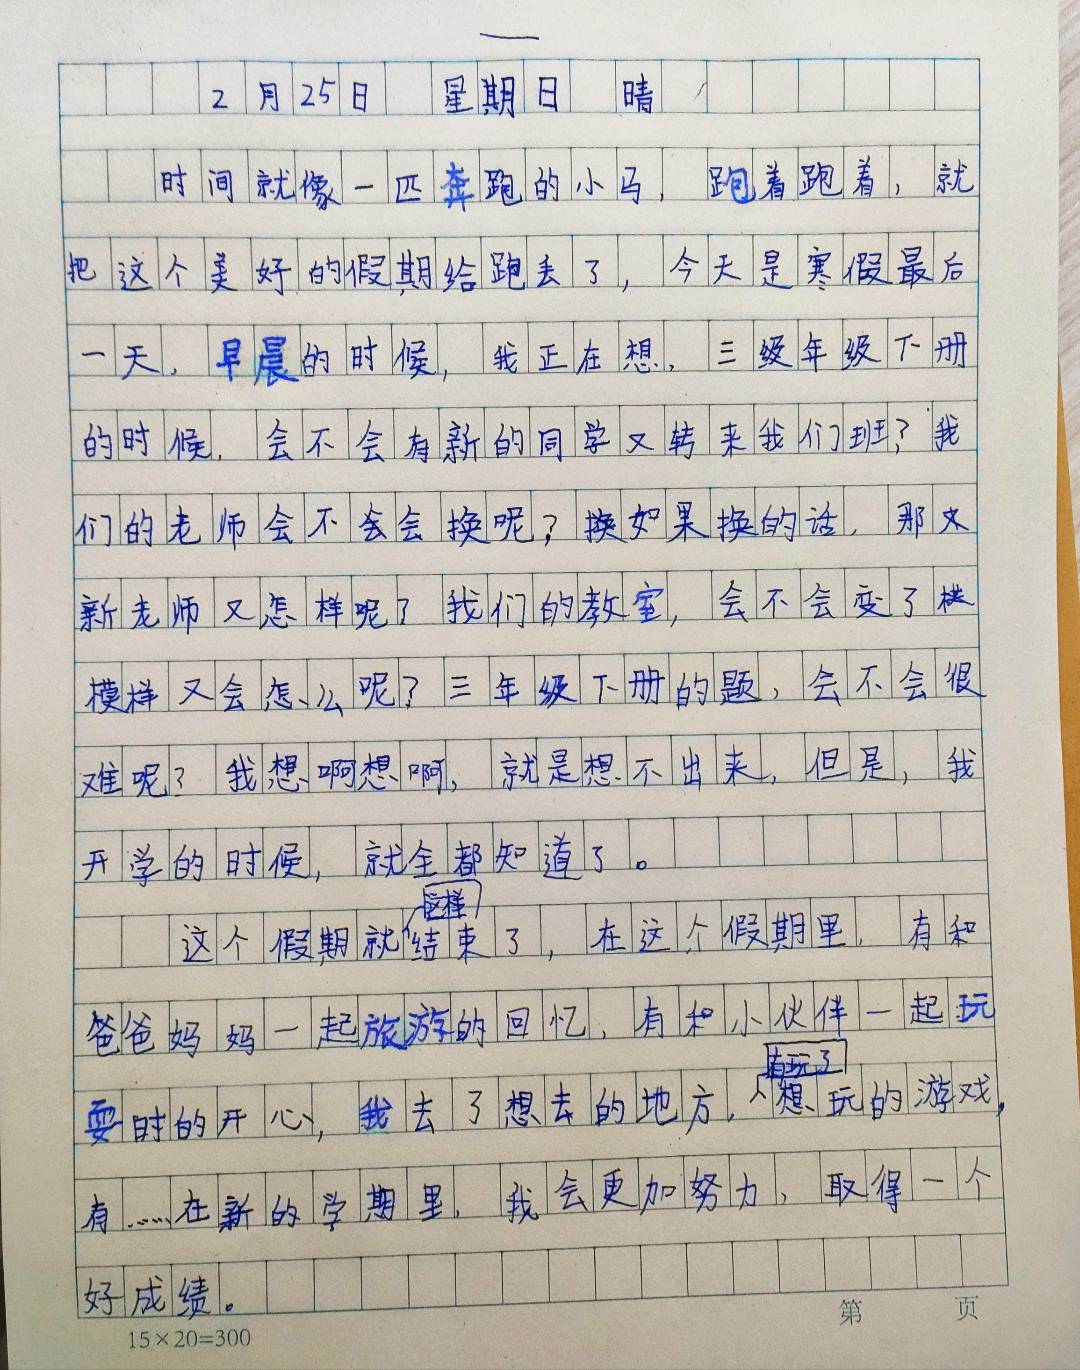 2月25日 星期日 晴
时间就像一匹奔跑的小马，跑着跑着，就
把这个美好的假期给跑丢了，今天是寒假最后
一天，早晨的时候，我正在想，三级年级下册
的时候，会不会有新的同学又转来我们班？我
们的老师会不会会换呢？换如果换的话，那
新老师又怎样呢？我们的教室，会不会变了
模样又会怎么呢？三年级下册的题，会不会很
难呢？我想啊想啊，就是想不出来，但是，我
开学的时候，就全都知道了。
这样
这个假期就结束了，在这个假期里，有和
爸爸妈妈一起旅游的回忆，有和小伙伴一起玩
有玩了
耍时的开心，我去了想去的地方，想玩的游戏，
有……在新的学期里，我会更加努力，取得一个
好成绩。
15×20=300
第 页